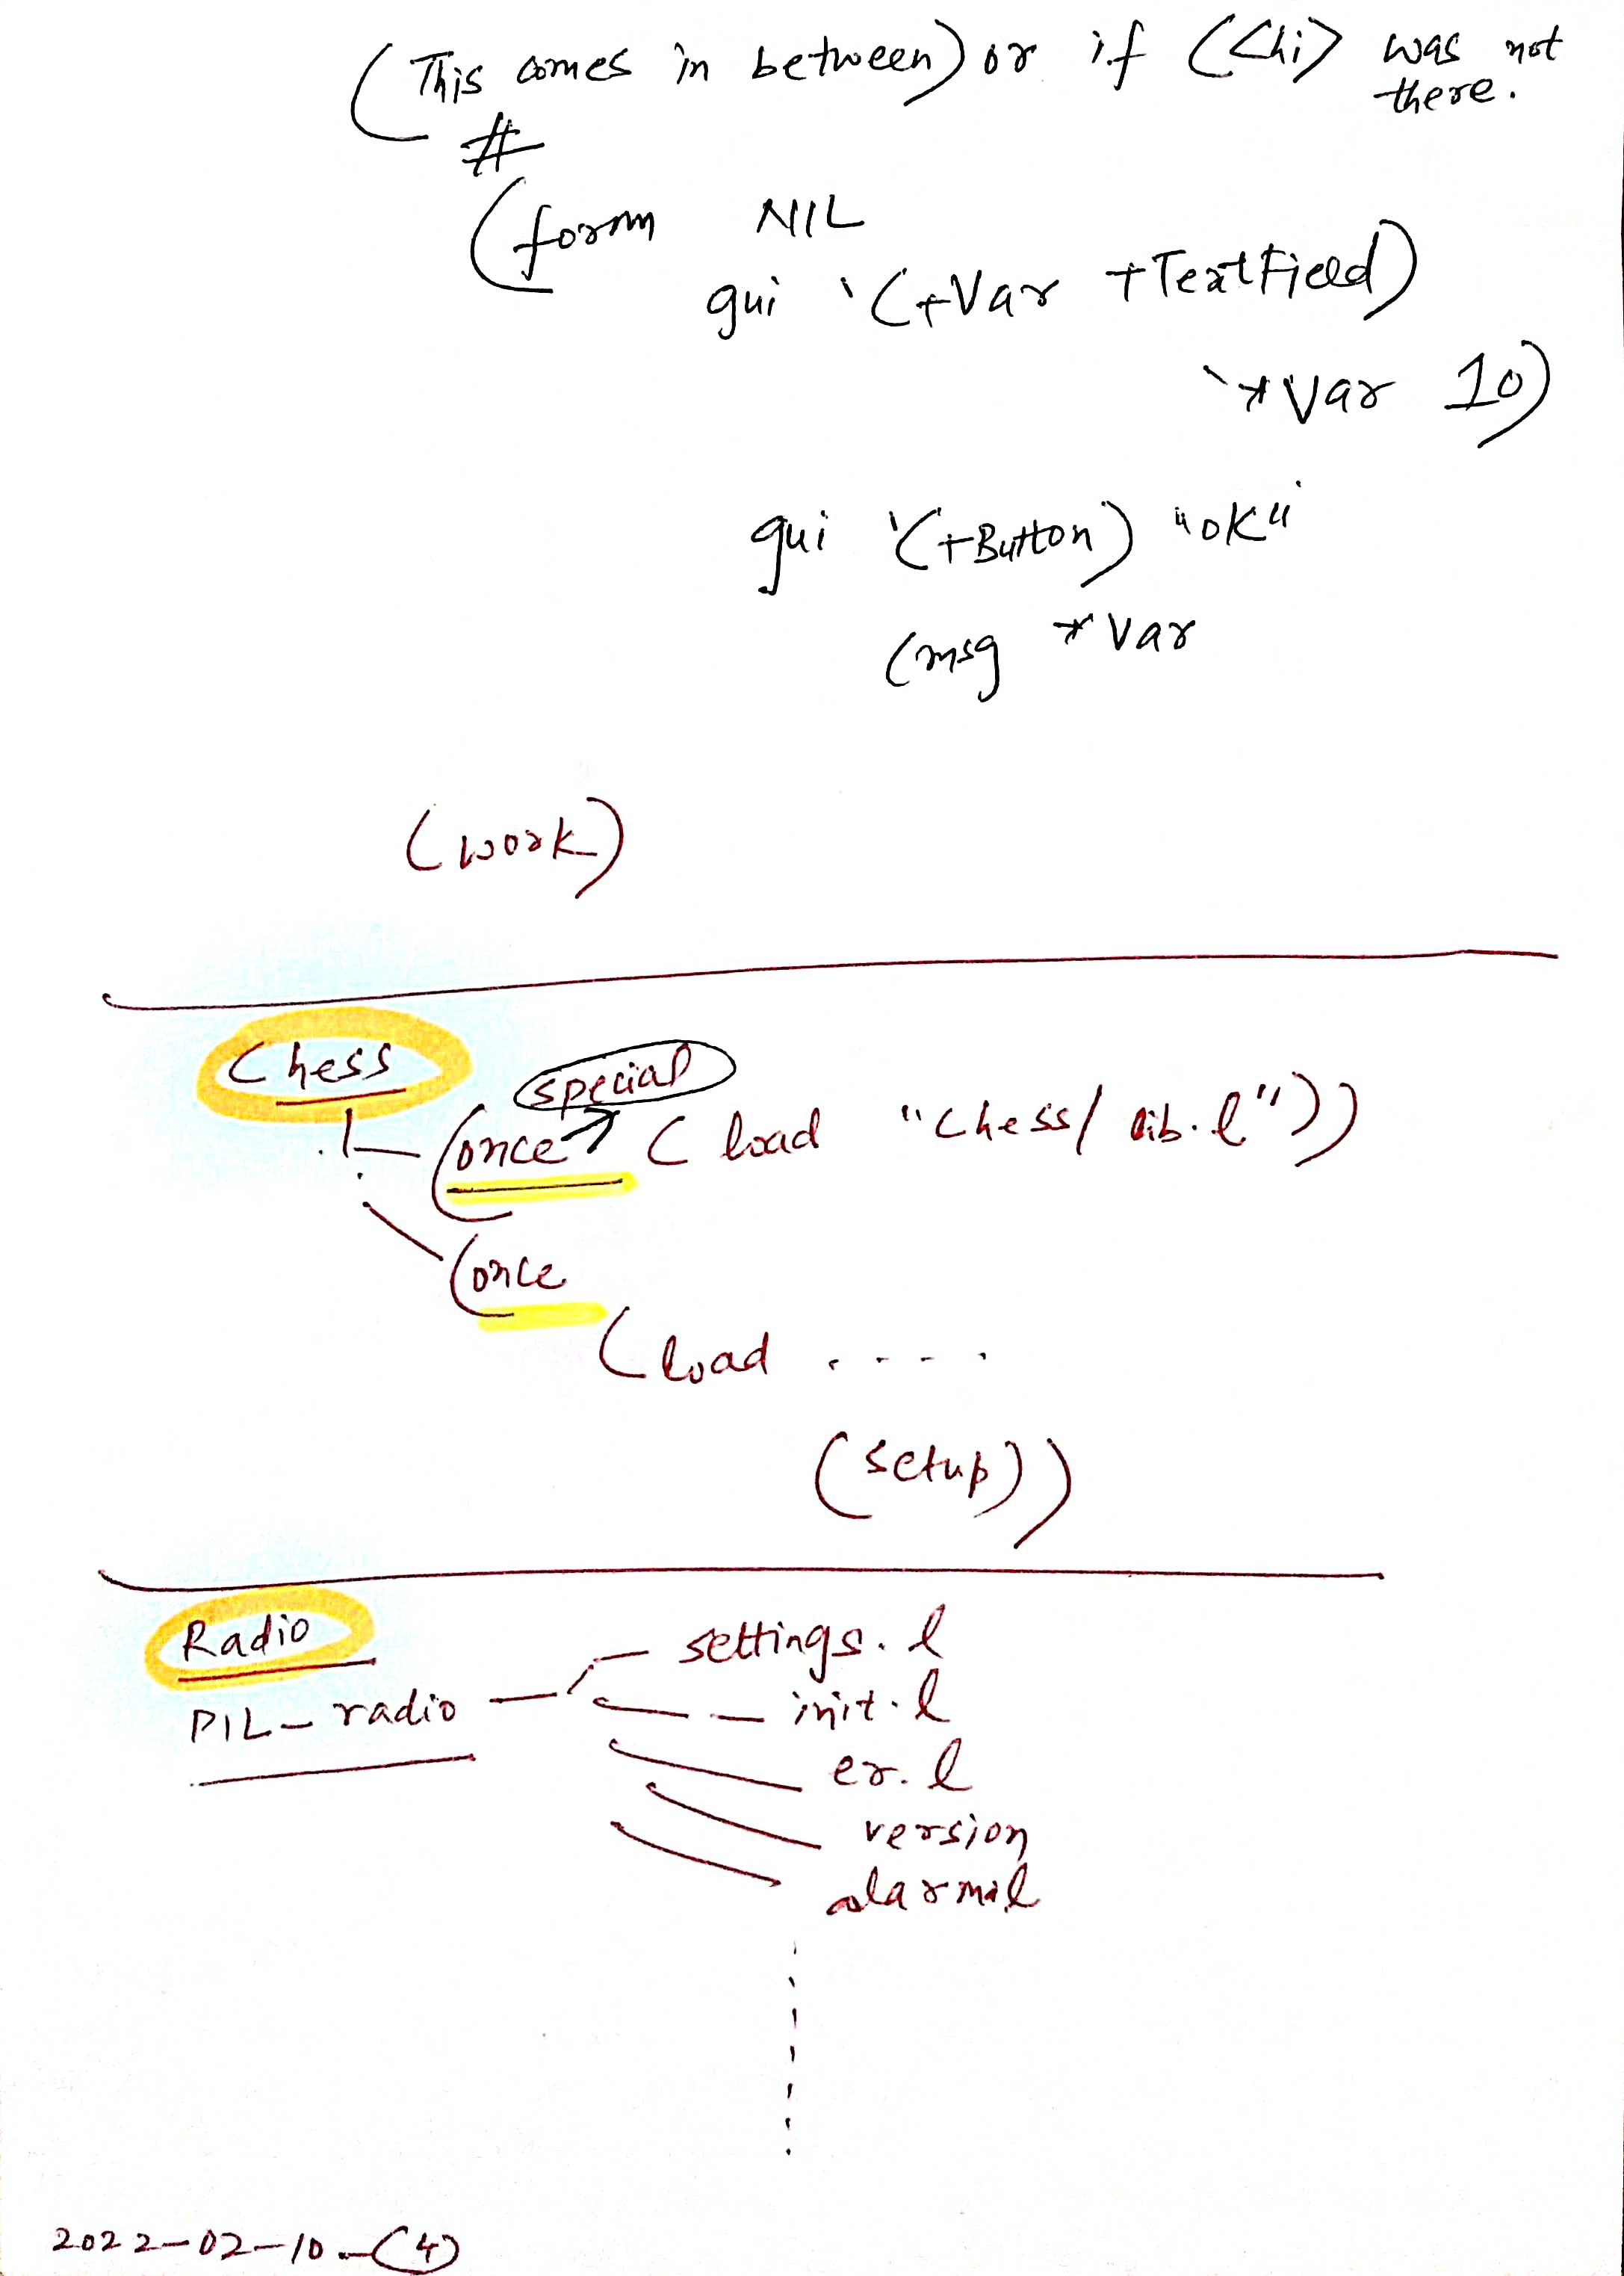 (This comes in between) or if (<hi> was not
there.
#
(form NIL
gui '(+Var +TextField)
'*Var 10)
gui '(+Button) "OK"
(msg *Var
(work)
Chess
special
(once (load "chess/lib.l"))
(once
(load .....
(setup))
Radio
PIL-radio
settings.l
init.l
er.l
version
alarm.l
2022-02-10-(4)